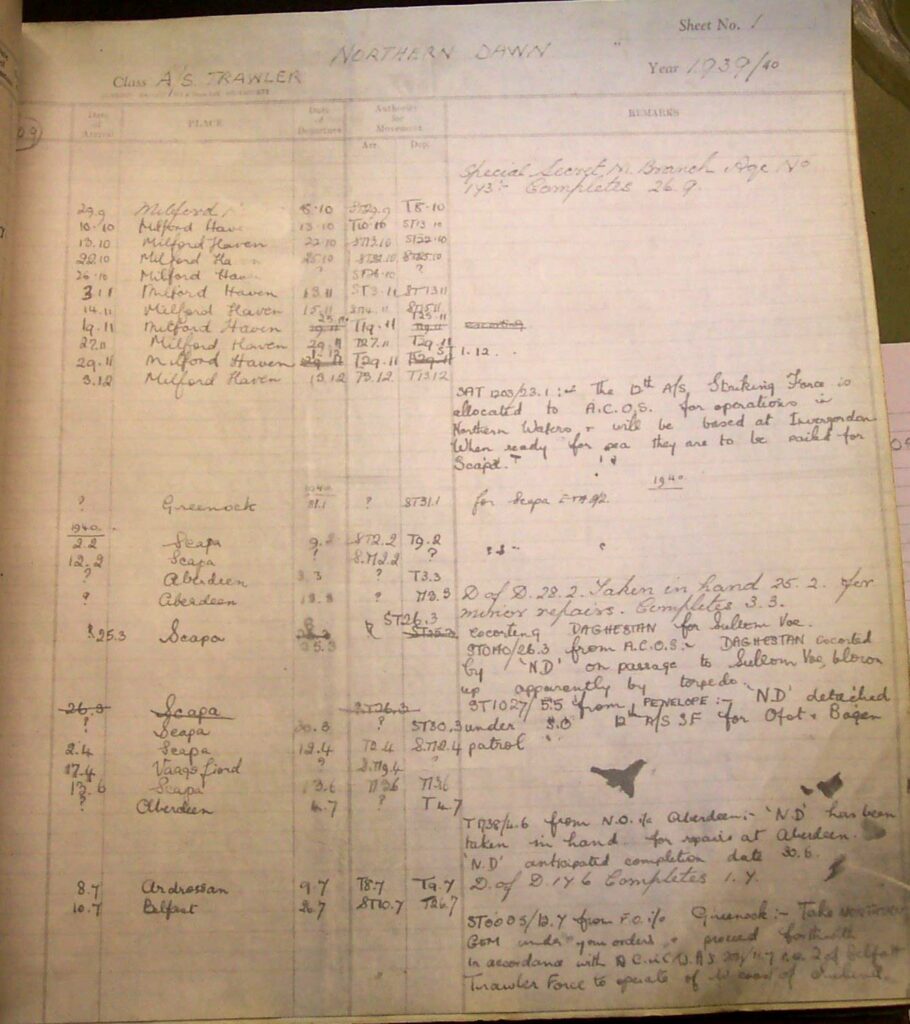 Sheet No. 1
NORTHERN DAWN "
Class A/S TRAWLER
Year 1939/40
Date of Arrival PLACE Date of Departure Authority for Movement REMARKS
Arr. Dep.
Special Secret M. Branch No
143:- Completes 26.9.
29.9 Milford 8.10 ST29.9 T8.10
10.10 Milford Have 13.10 T10.10 ST13.10
13.10 Milford Haven 22.10 ST13.10 ST22.10
22.10 Milford Ha n 25.10 ST22.10 ST25.10
26.10 Milford Hav ? ST26.10 ?
3.11 Milford Haven 13.11 ST3.11 ST13.11
14.11 Milford Haven 15.11 ST14.11 ST15.11
19.11 Milford Haven 25.11 T19.11 T25.11 escorting
27.11 Milford Haven 29.11 T27.11 T29.11
29.11 Milford Haven T29.11 ST1.12.
3.12 Milford Haven 13.12 T3.12 T13.12
SAT 1203/23.1:- The 12th A/S Striking Force is
allocated to A.C.O.S. for operations in
Northern Waters & will be based at Invergordon.
When ready for sea they are to be sailed for
Scapa.
1940
1940
? Greenock 31.1 ? ST31.1 for Scapa ETA 2/2
1940
2.2 Scapa 9.2 ST2.2 T9.2
12.2 Scapa ? S.T12.2 ?
? Aberdeen 3.3 ? T3.3
? Aberdeen 13.3 ? T13.3 D of D. 28.2. Taken in hand 25.2. for
minor repairs. Completes 3.3.
ST26.3 escorting DAGHESTAN for Sullom Voe.
25.3 Scapa 25.3 ST25.3 ST0140/26.3 from A.C.O.S:- DAGHESTAN escorted
by 'N.D' on passage to Sullom Voe, blown
up apparently by torpedo.
26.3 Scapa ST26.3 ST1027/5.5 from PENELOPE:- 'N.D' detached
? Scapa 30.3 ST30.3 under S.O 12th A/S SF for Ofot & Bogen
2.4 Scapa 12.4 T2.4 S.T12.4 patrol
17.4 Vaags fiord ? S.T19.4
13.6 Scapa 13.6 T13.6 T13.6
? Aberdeen 4.7 ? T4.7
T1738/4.6 from N.O. i/c Aberdeen:- 'N.D' has been
taken in hand for repairs at Aberdeen.
'N.D' anticipated completion date 30.6.
8.7 Ardrossan 9.7 T8.7 T9.7 D. of D. 14.6 Completes 1.7.
10.7 Belfast 26.7 ST10.7 T26.7
ST0005/12.7 from F.O. i/c Greenock:- Take NORTHERN
GEM under your orders & proceed forthwith
in accordance with of Belfast
Trawler Force to operate